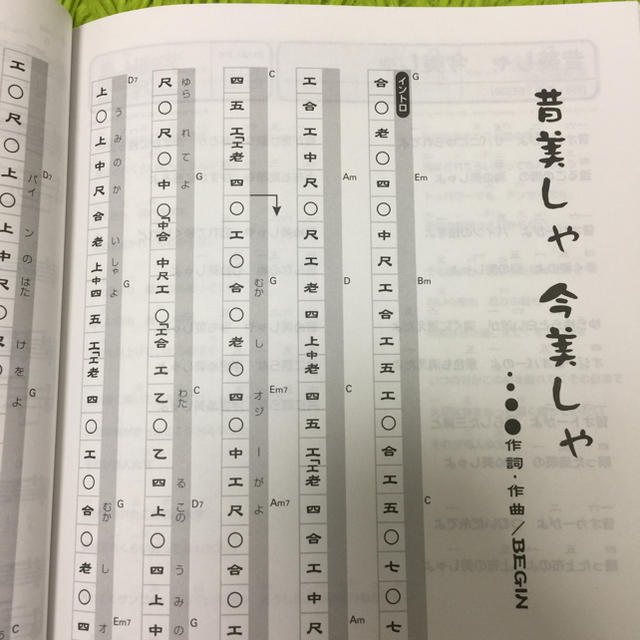 昔美しゃ 今美しゃ
作詞・作曲/BEGIN
イントロ
G Em Bm C
合〇老〇四〇中尺工合工五工〇合工五〇七〇七
Am D C Am
工合工中尺〇尺工老四上中老四五工「工老四合工中尺
C G Em7 Am7
四五工「工老四〇工〇合〇老〇四〇中工尺〇合〇工
むかしオジーがよ
G C D7
尺〇尺〇中〇「中合中尺工〇「工合工乙〇乙四上〇四上中
ゆられてよ わたるこのうみの
D7 G Em7
上〇上中尺合老上中四五工「工老四〇工〇合〇老〇四
うみのかいしゃよ むかしオ
D7 G C
工〇尺〇上〇上中尺
パインのはたけをよ